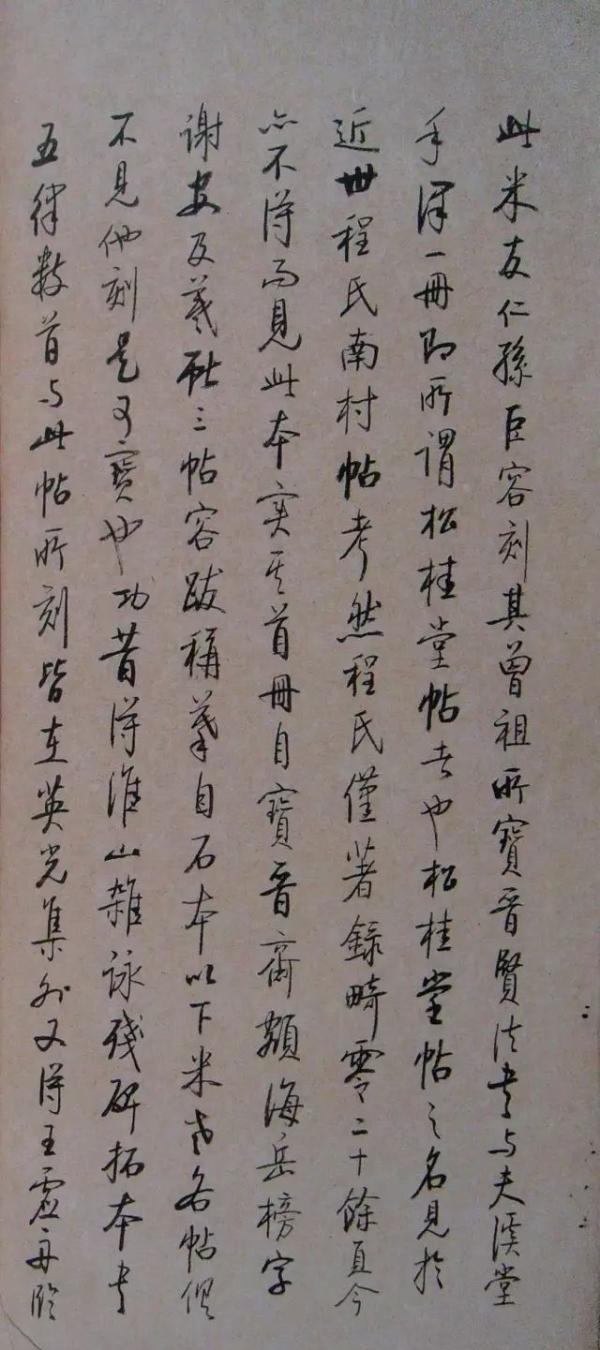 此米友仁孫巨容刻其曾祖所寶晉賢法書与夫溪堂
手澤一冊即所謂松桂堂帖者也松桂堂帖之名見於
近世程氏南村帖考然程氏僅著録畸零二十餘頁今
亦不得而見此本実其首冊自寶晉齋額海岳榜字
謝安及羲獻三帖容跋稱摹自石本以下米老各帖俱
不見他刻是可寶也功昔得淮山雜詠殘碑拓本書
五律數首与此帖所刻皆在英光集外又得王虛舟臨